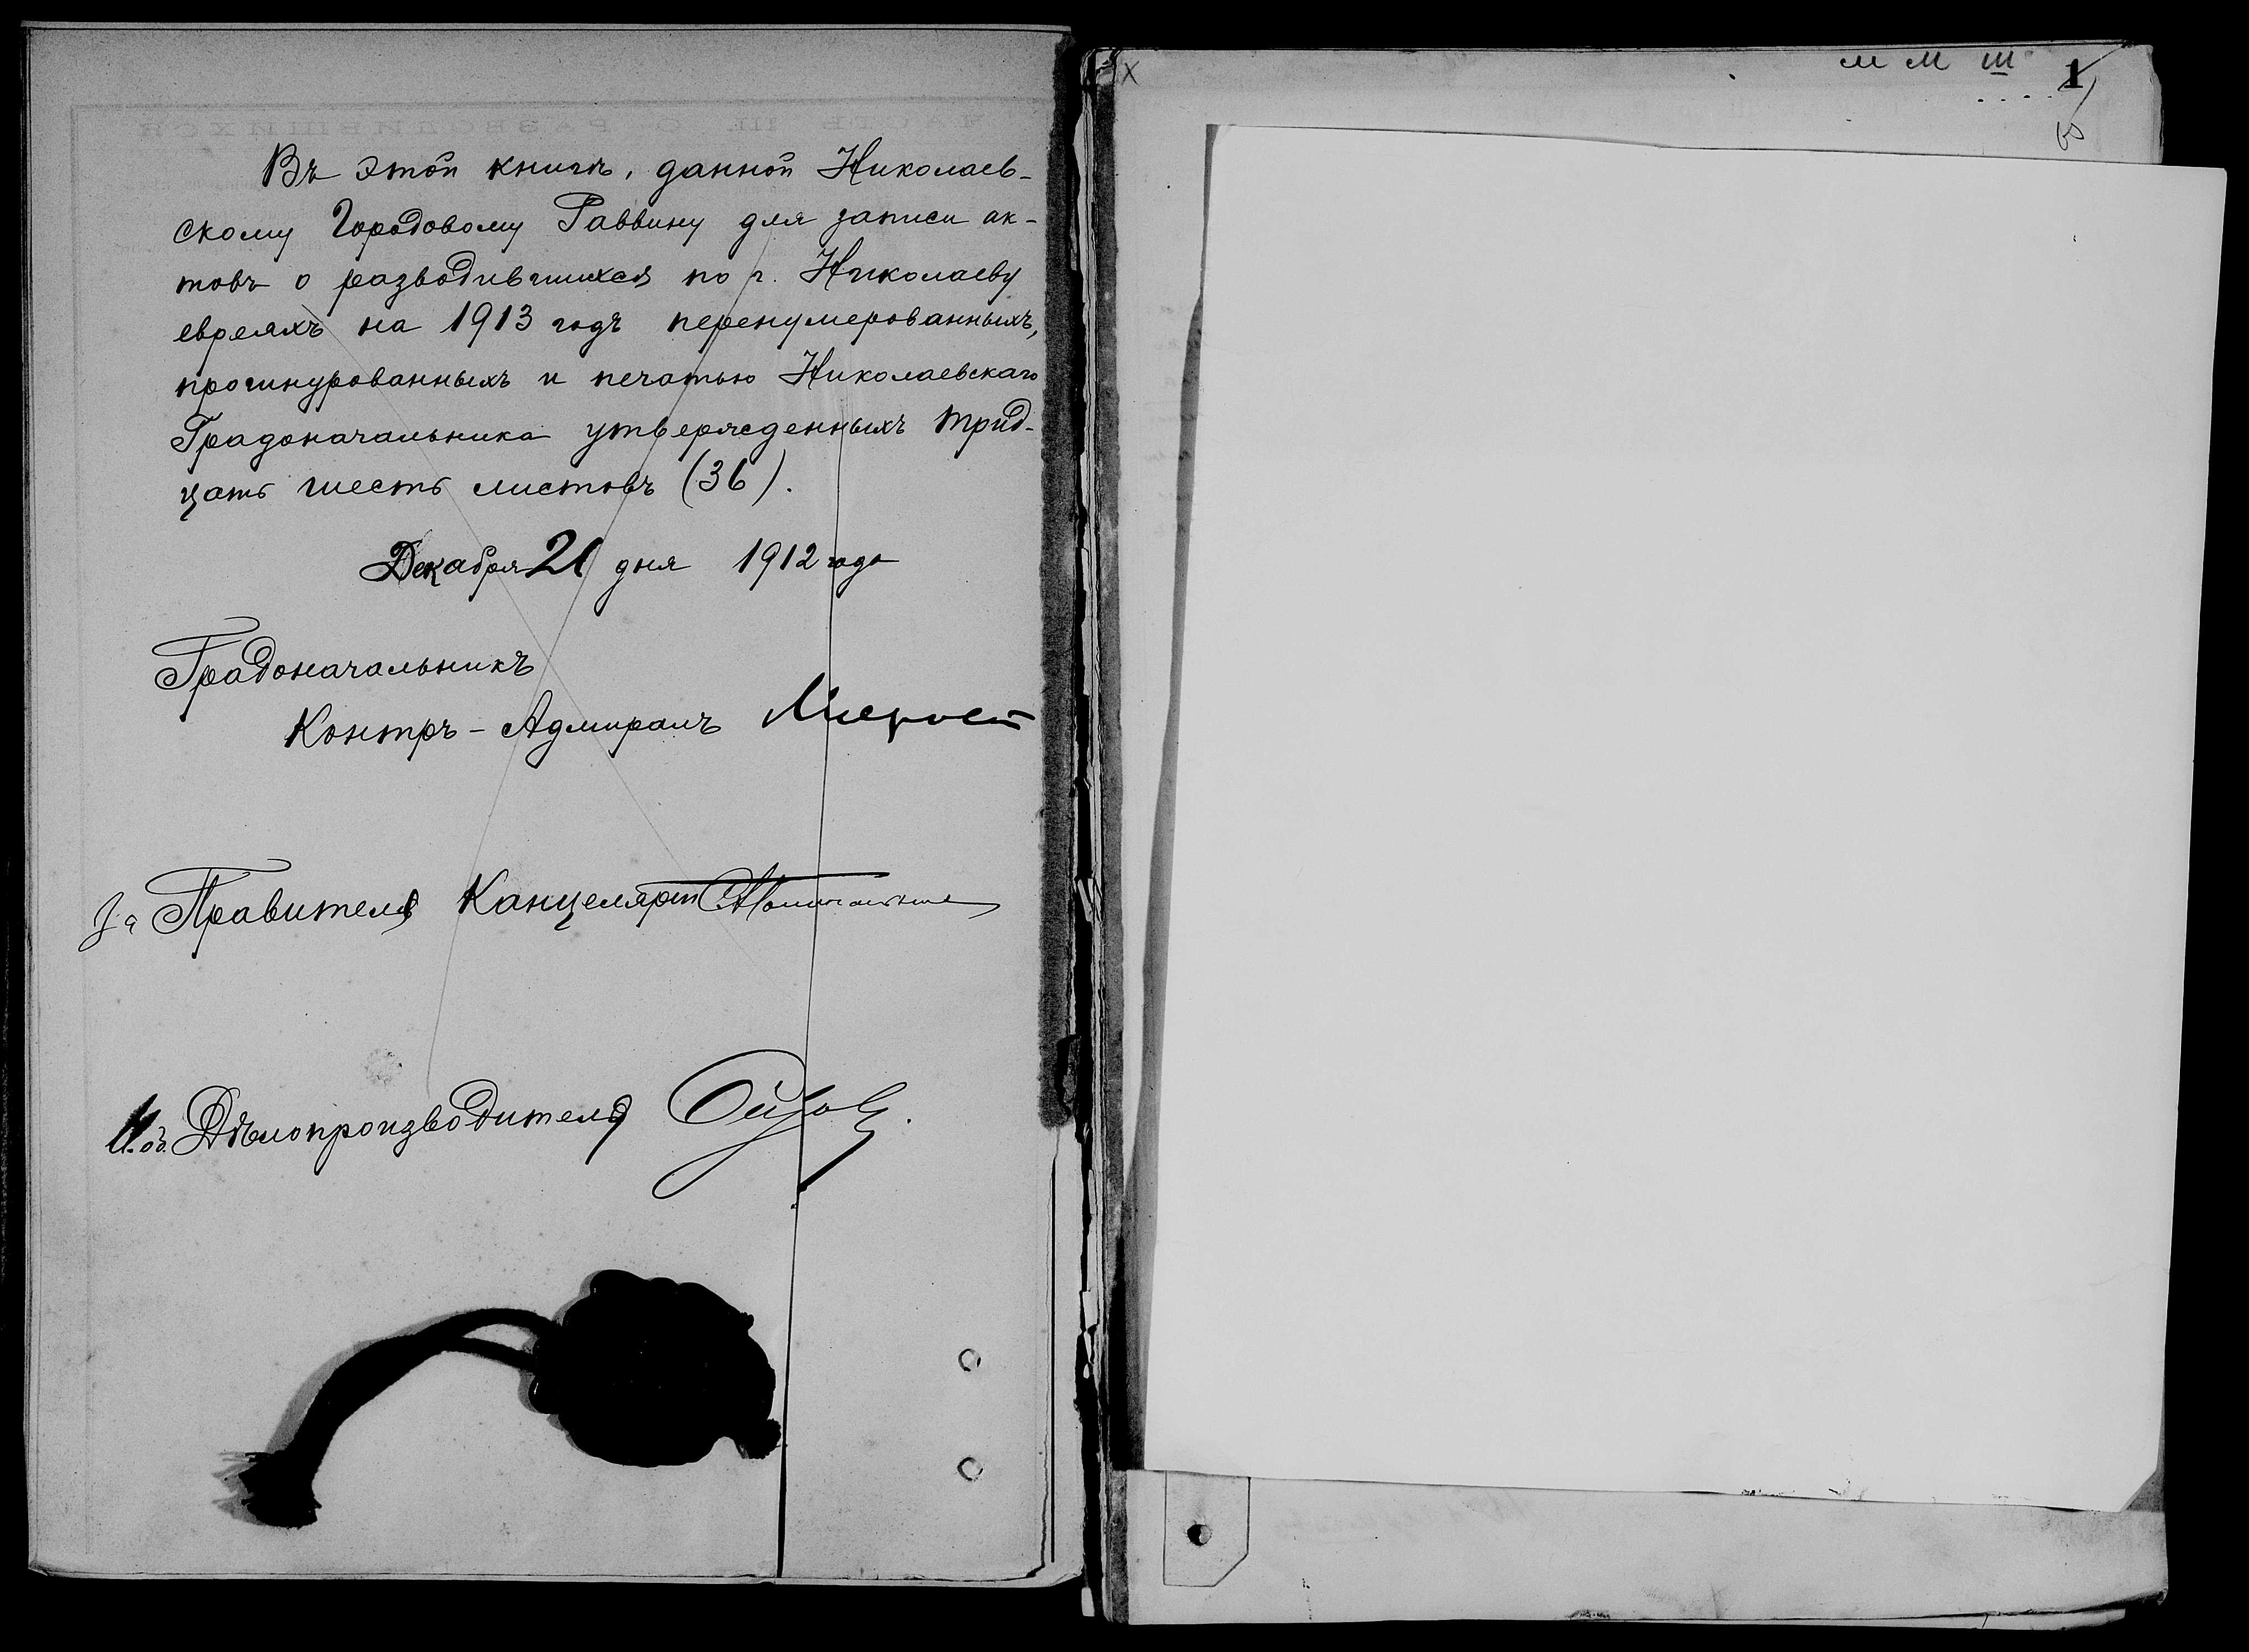 Въ этой книгѣ, данной Николаев-
скому Городовому Раввину для записи ак-
товъ о разводившихся по г. Николаеву
евреяхъ на 1913 годъ перенумерованныхъ,
прошнурованныхъ и печатью Николаевскаго
Градоначальника утвержденныхъ трид-
цать шесть листовъ (36).
Декабря 21 дня 1912 года
Градоначальникъ
Контръ-Адмиралъ
За Правителя Канцеляріи
И. об. Дѣлопроизводителя
ЧАСТЬ III. О РАЗВОДИВШИХСЯ
х
м м ш
1